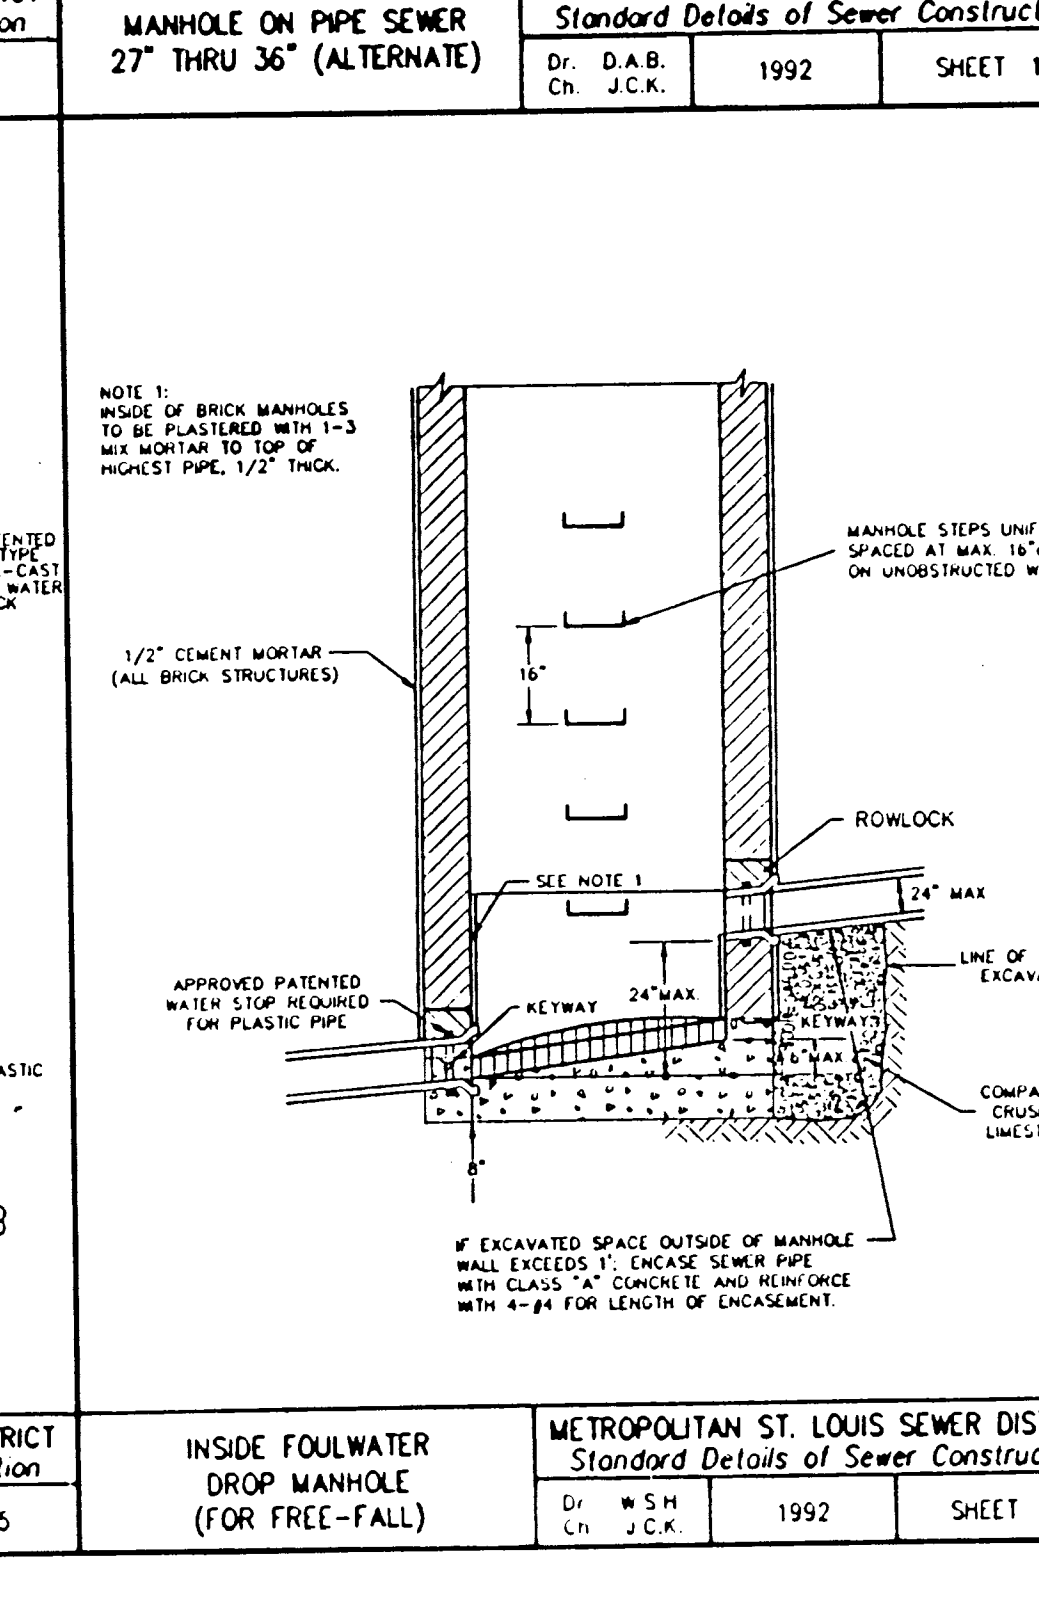 on
MANHOLE ON PIPE SEWER
27" THRU 36" (ALTERNATE)
Standard Details of Sewer Construct
Dr. D.A.B.
Ch. J.C.K.
1992
SHEET 1
NOTE 1:
INSIDE OF BRICK MANHOLES
TO BE PLASTERED WITH 1-3
MIX MORTAR TO TOP OF
HIGHEST PIPE, 1/2" THICK.
ENTED
TYPE
-CAST
WATER
CK
MANHOLE STEPS UNIF
SPACED AT MAX. 16"
ON UNOBSTRUCTED W
1/2" CEMENT MORTAR
(ALL BRICK STRUCTURES)
16"
ROWLOCK
SEE NOTE 1
24" MAX
APPROVED PATENTED
WATER STOP REQUIRED
FOR PLASTIC PIPE
KEYWAY
24"MAX.
LINE OF
EXCAVA
KEYWAY
6"MAX
ASTIC
COMPA
CRUS
LIMEST
8"
IF EXCAVATED SPACE OUTSIDE OF MANHOLE
WALL EXCEEDS 1'; ENCASE SEWER PIPE
WITH CLASS "A" CONCRETE AND REINFORCE
WITH 4-#4 FOR LENGTH OF ENCASEMENT.
RICT
tion
5
INSIDE FOULWATER
DROP MANHOLE
(FOR FREE-FALL)
METROPOLITAN ST. LOUIS SEWER DIS
Standard Details of Sewer Construc
Dr W S H
Ch J.C.K.
1992
SHEET